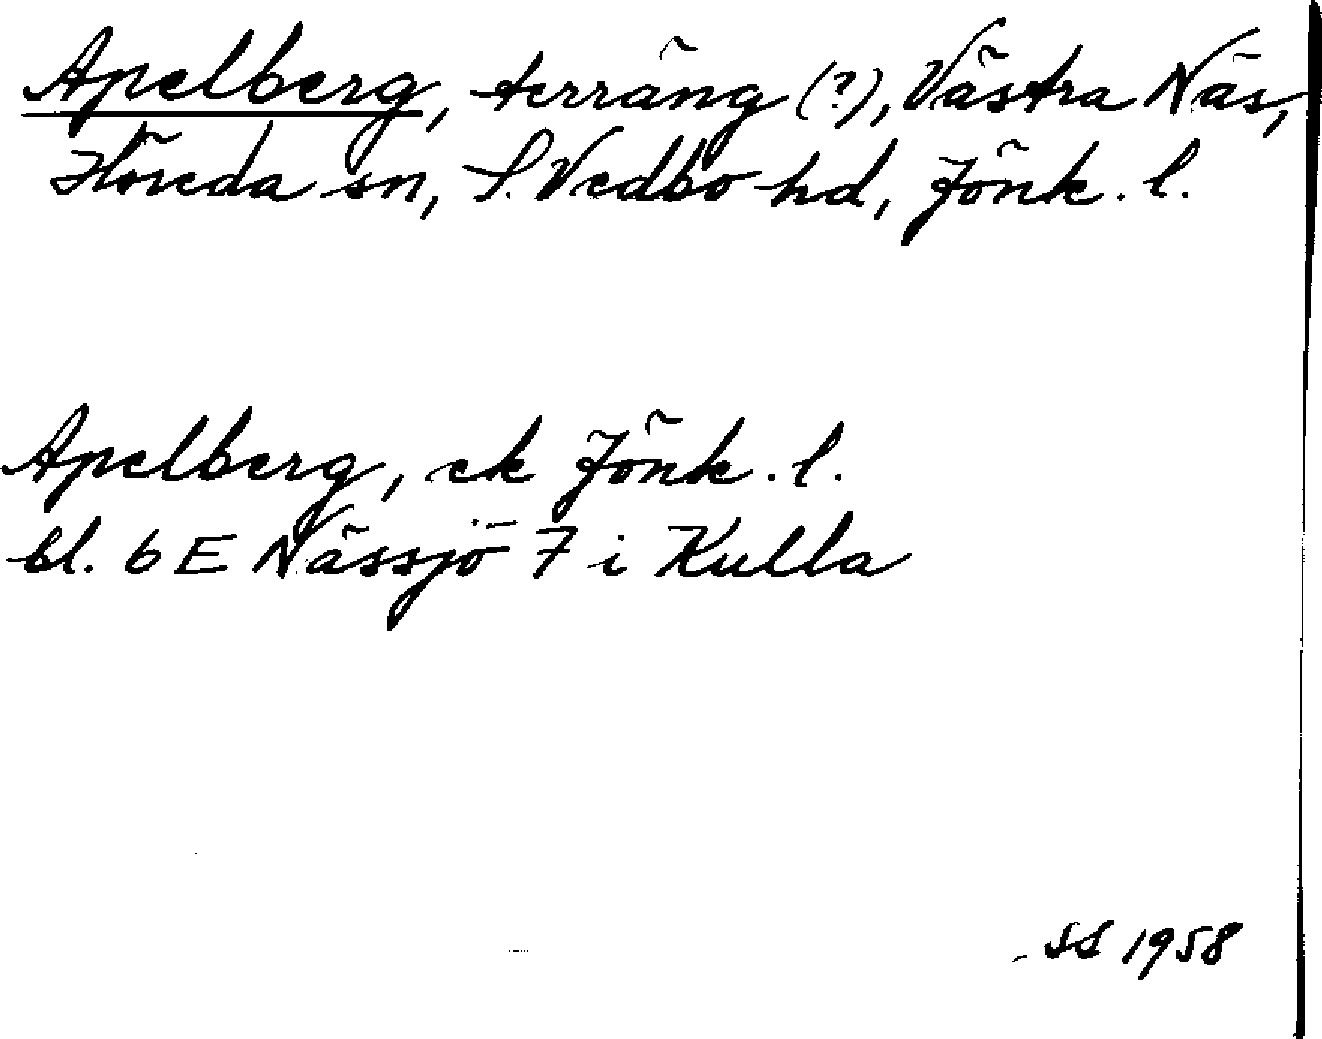 Apelberg, terräng (?), Västra Näs,
Höreda sn, S. Vedbo hd, Jönk. l.
Apelberg, ek Jönk. l.
bl. 6 E Nässjö 7 i Kulla
SS 1958